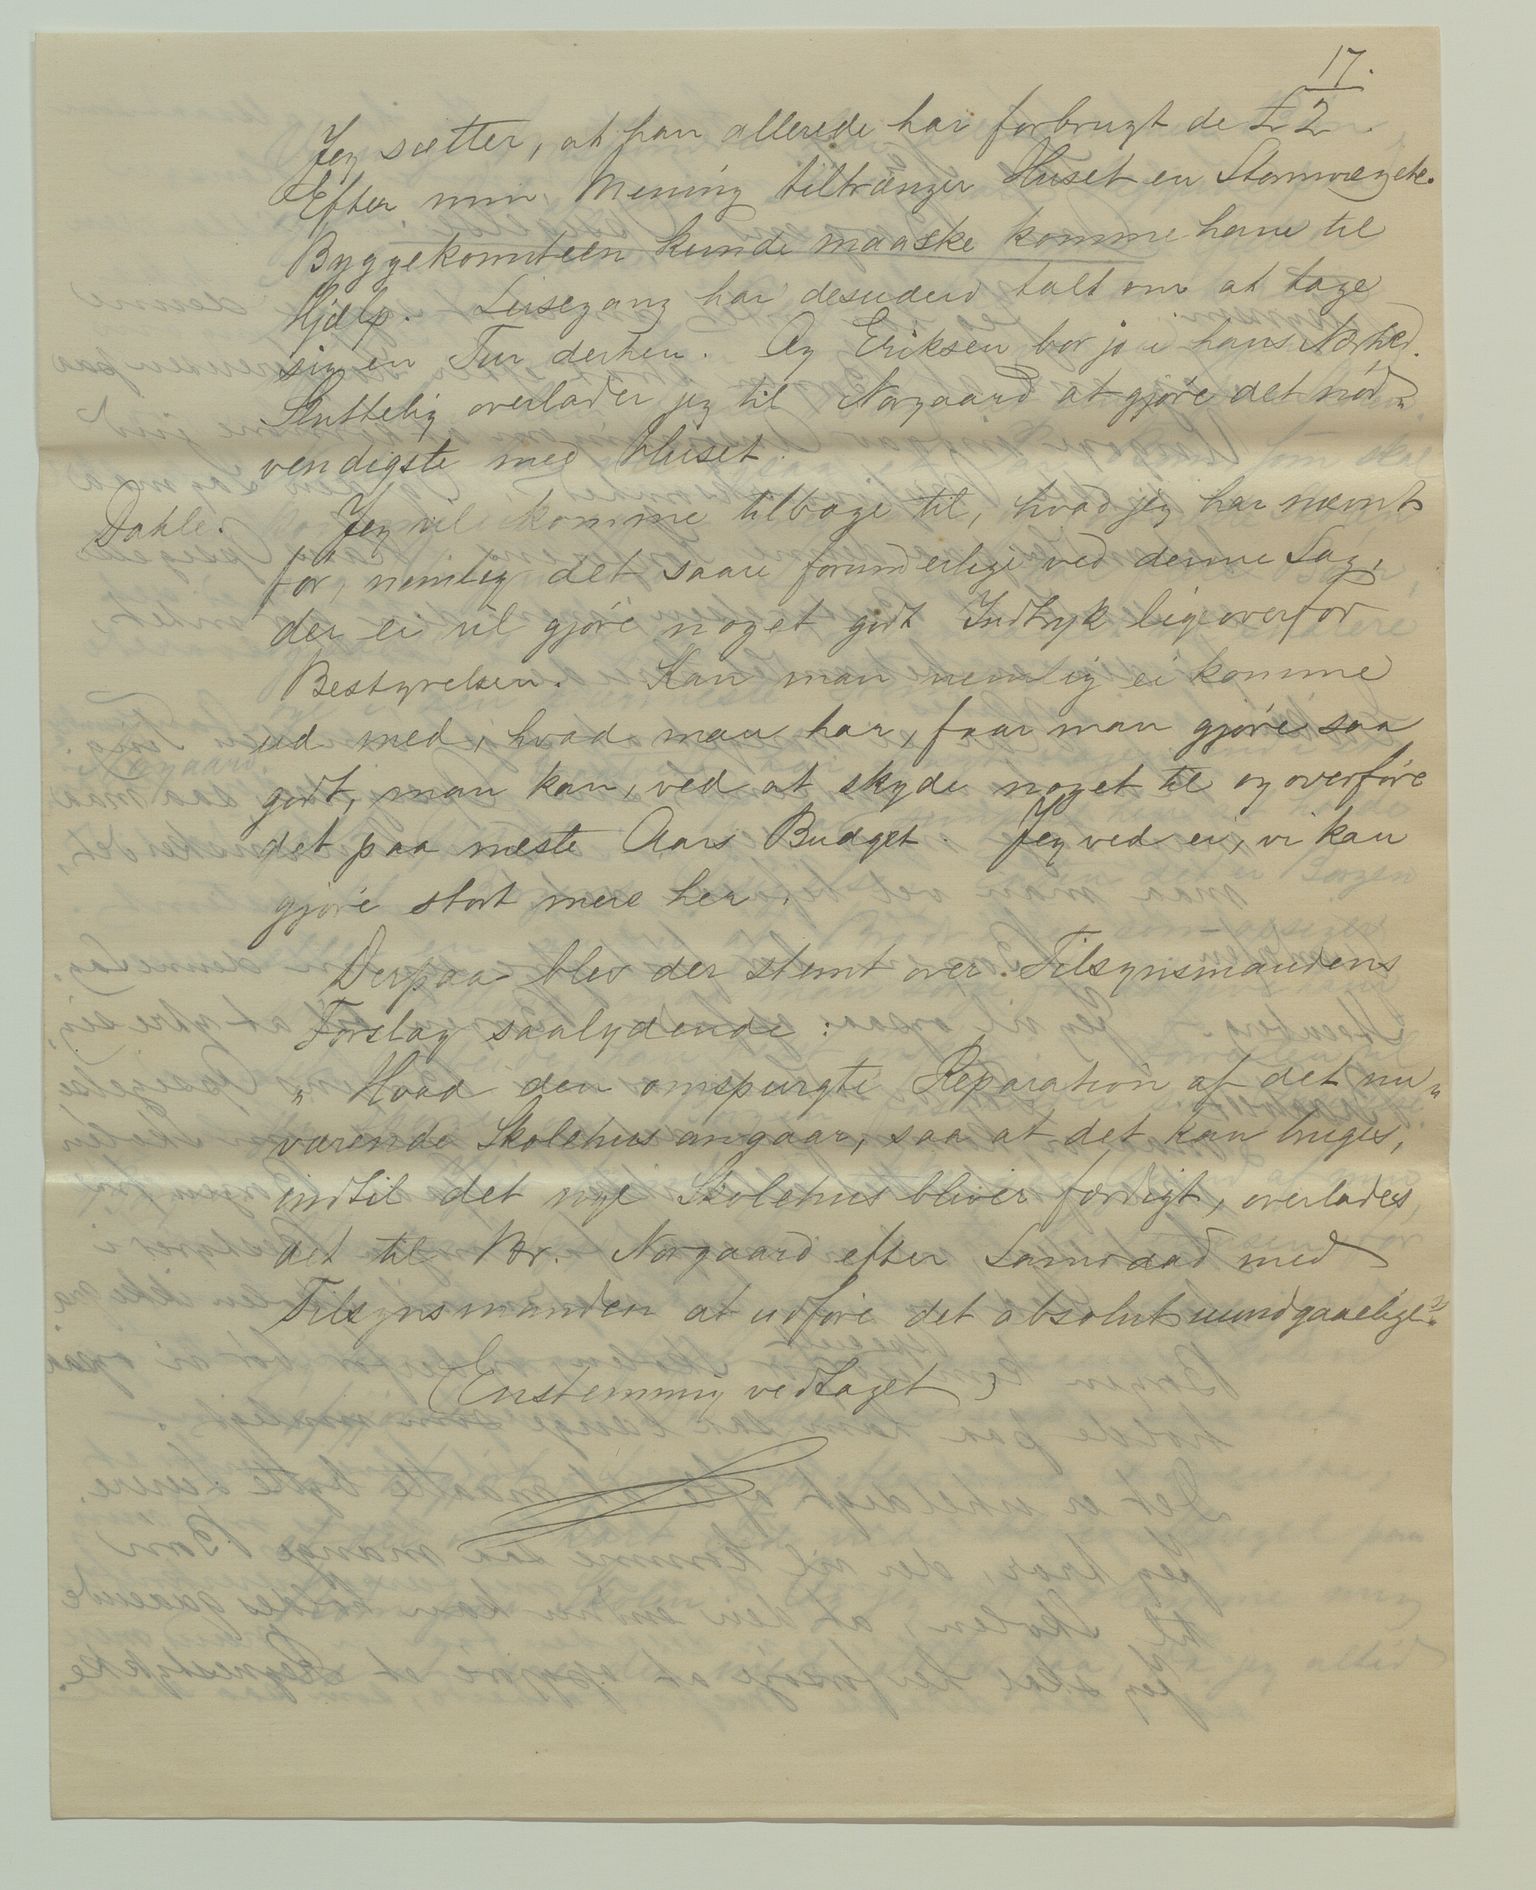 17.
Jeg sætter, at han allerede har forbrugt de £ 2.
Efter min Mening tiltrænger Huset en
Byggekomiteen kunde maaske komme ham til
Hjælp. Leisegang har desuden talt om at tage
sig en Tur derhen. Og Eriksen bor jo i hans Nærhed.
Sluttelig overlader jeg til Norgaard at gjøre det nød„
vendigste med Huset.
Dahle. Jeg vil komme tilbage til, hvad jeg har nævnt
før, nemlig det saare forunderlige ved denne Sag,
der ei vil gjøre noget godt Indtryk ligeoverfor
Bestyrelsen. Kan man nemlig ei komme
ud med, hvad man har, faar man gjøre saa
godt, man kan, ved at skyde noget til og overføre
det paa næste Aars Budget. Jeg ved ei, vi kan
gjøre stort mere her.
Derpaa blev der stemt over Tilsynsmandens
Forslag saalydende:
„Hvad den omspurgte Reparation af det nu„
værende Skolehus angaar, saa at det kan bruges,
indtil det nye Skolehus bliver færdigt, overlades,
det til Br. Norgaard efter Samraad med
Tilsynsmanden at udføre det absolut uundgaaelige."
(Enstemmig vedtaget)